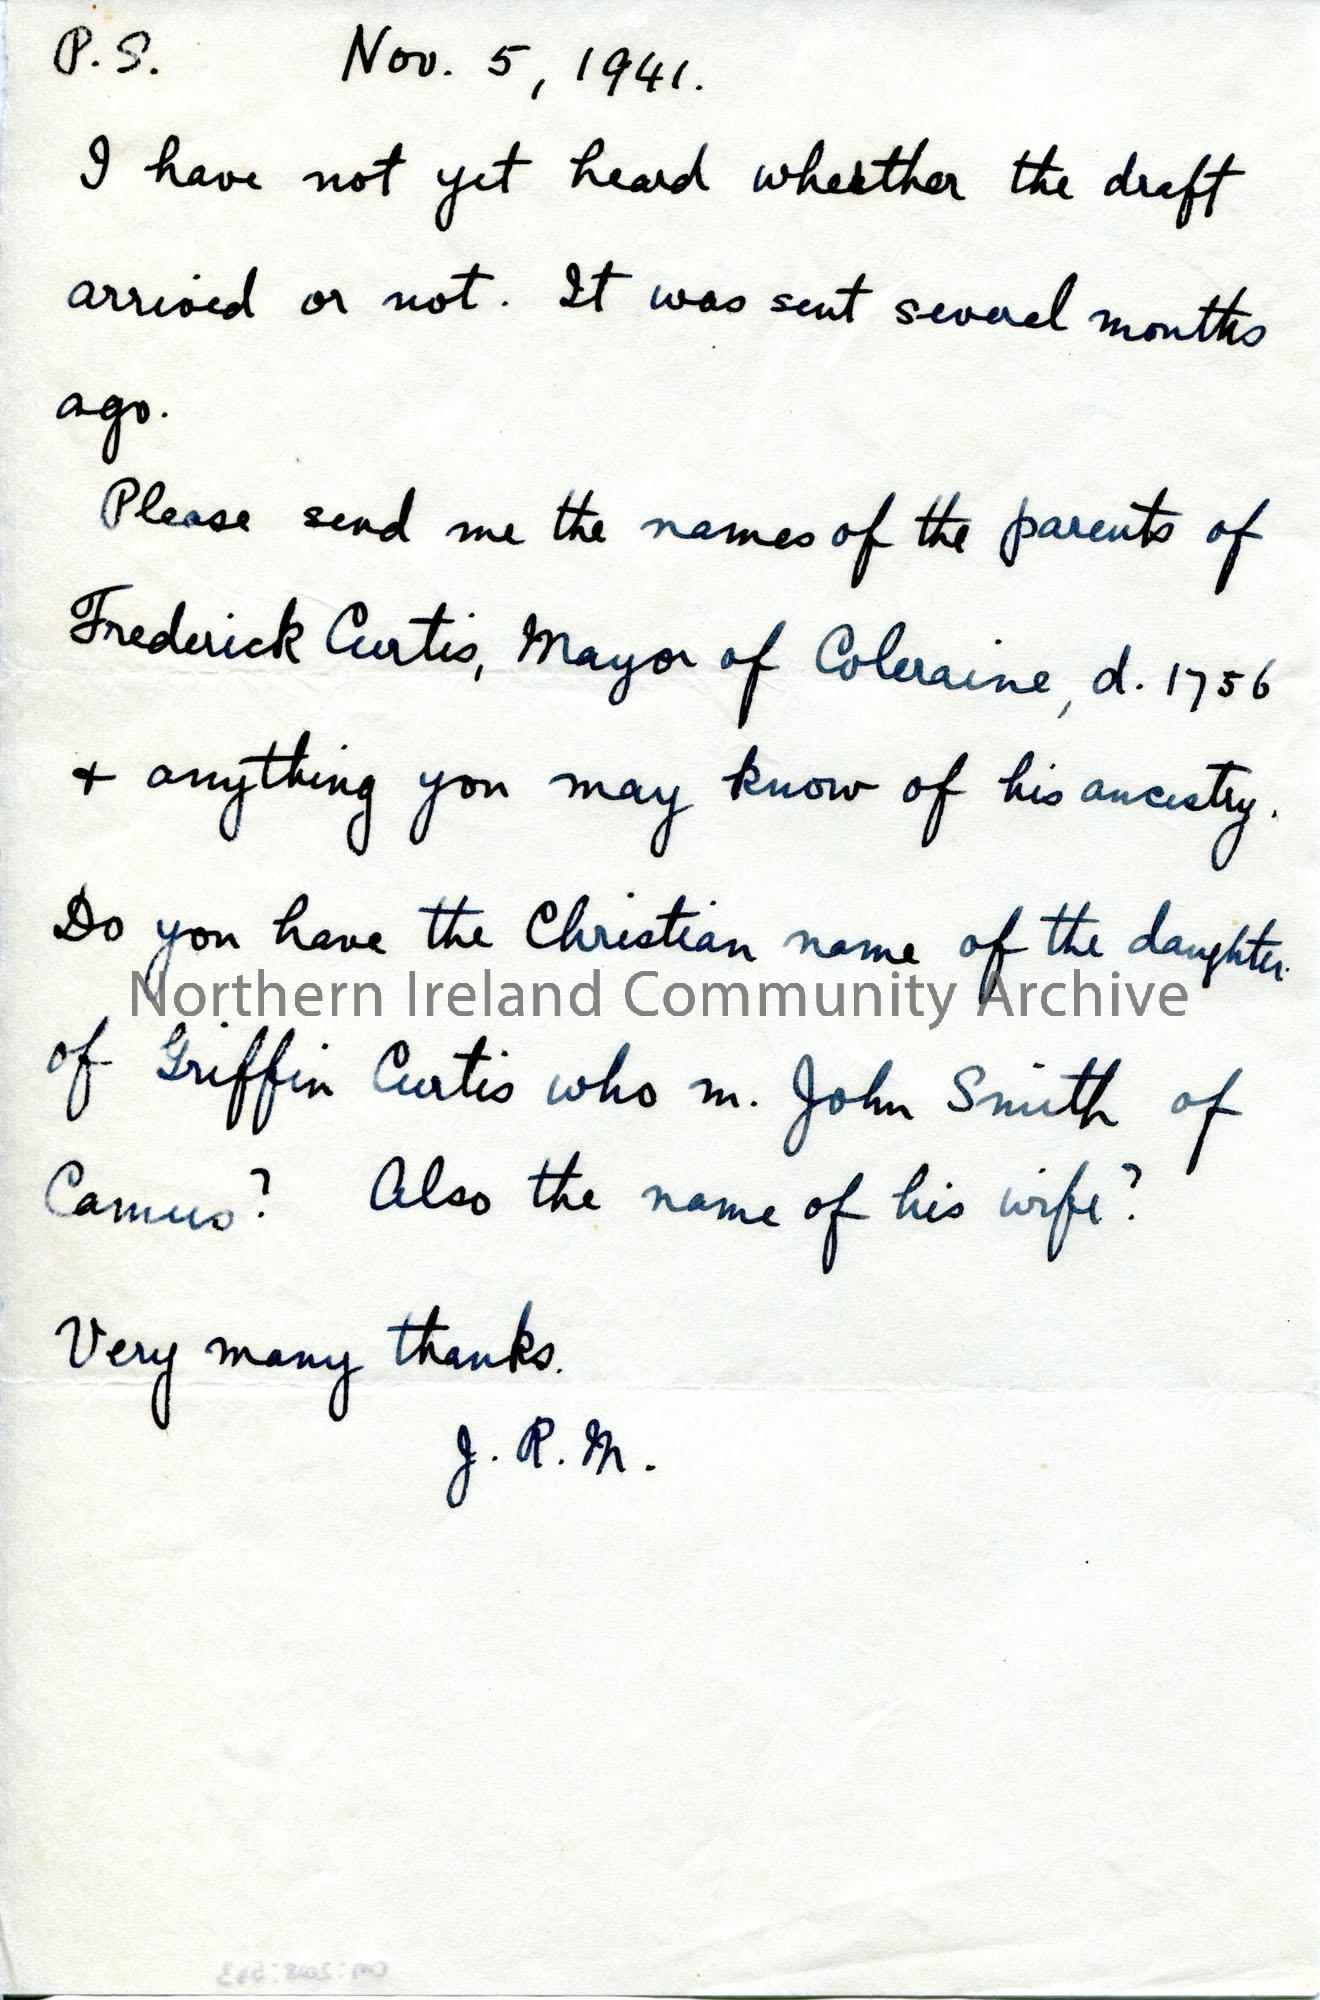 P.S. Nov. 5, 1941.
I have not yet heard whether the draft
arrived or not. It was sent several months
ago.
Please send me the names of the parents of
Frederick Curtis, Mayor of Coleraine, d. 1756
+ anything you may know of his ancestry.
Do you have the Christian name of the daughter
Northern Ireland Community Archive
of Griffin Curtis who m. John Smith of
Camus? Also the name of his wife?
Very many thanks.
J. R. M.